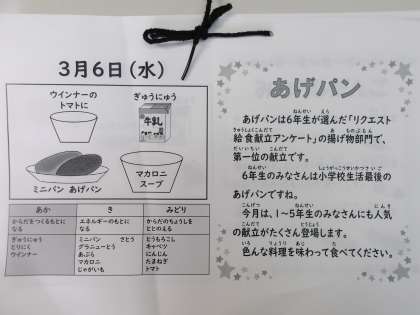 3月6日（水）
ウインナーの
トマトに
ぎゅうにゅう
牛乳
ミニパン あげパン
マカロニ
スープ
あか き みどり
からだをつくるもとに
なる
エネルギーのもとに
なる
からだのちょうしを
ととのえる
ぎゅうにゅう
とりにく
ウインナー
ミニパン さとう
グラニューとう
あぶら
マカロニ
じゃがいも
とうもろこし
キャベツ
にんじん
たまねぎ
トマト
あげパン
あげパンは6年生が選んだ「リクエスト
給食献立アンケート」の揚げ物部門で、
第一位の献立です。
6年生のみなさんは小学校生活最後の
あげパンですね。
今月は、1～5年生のみなさんにも人気
の献立がたくさん登場します。
色んな料理を味わって食べてください。